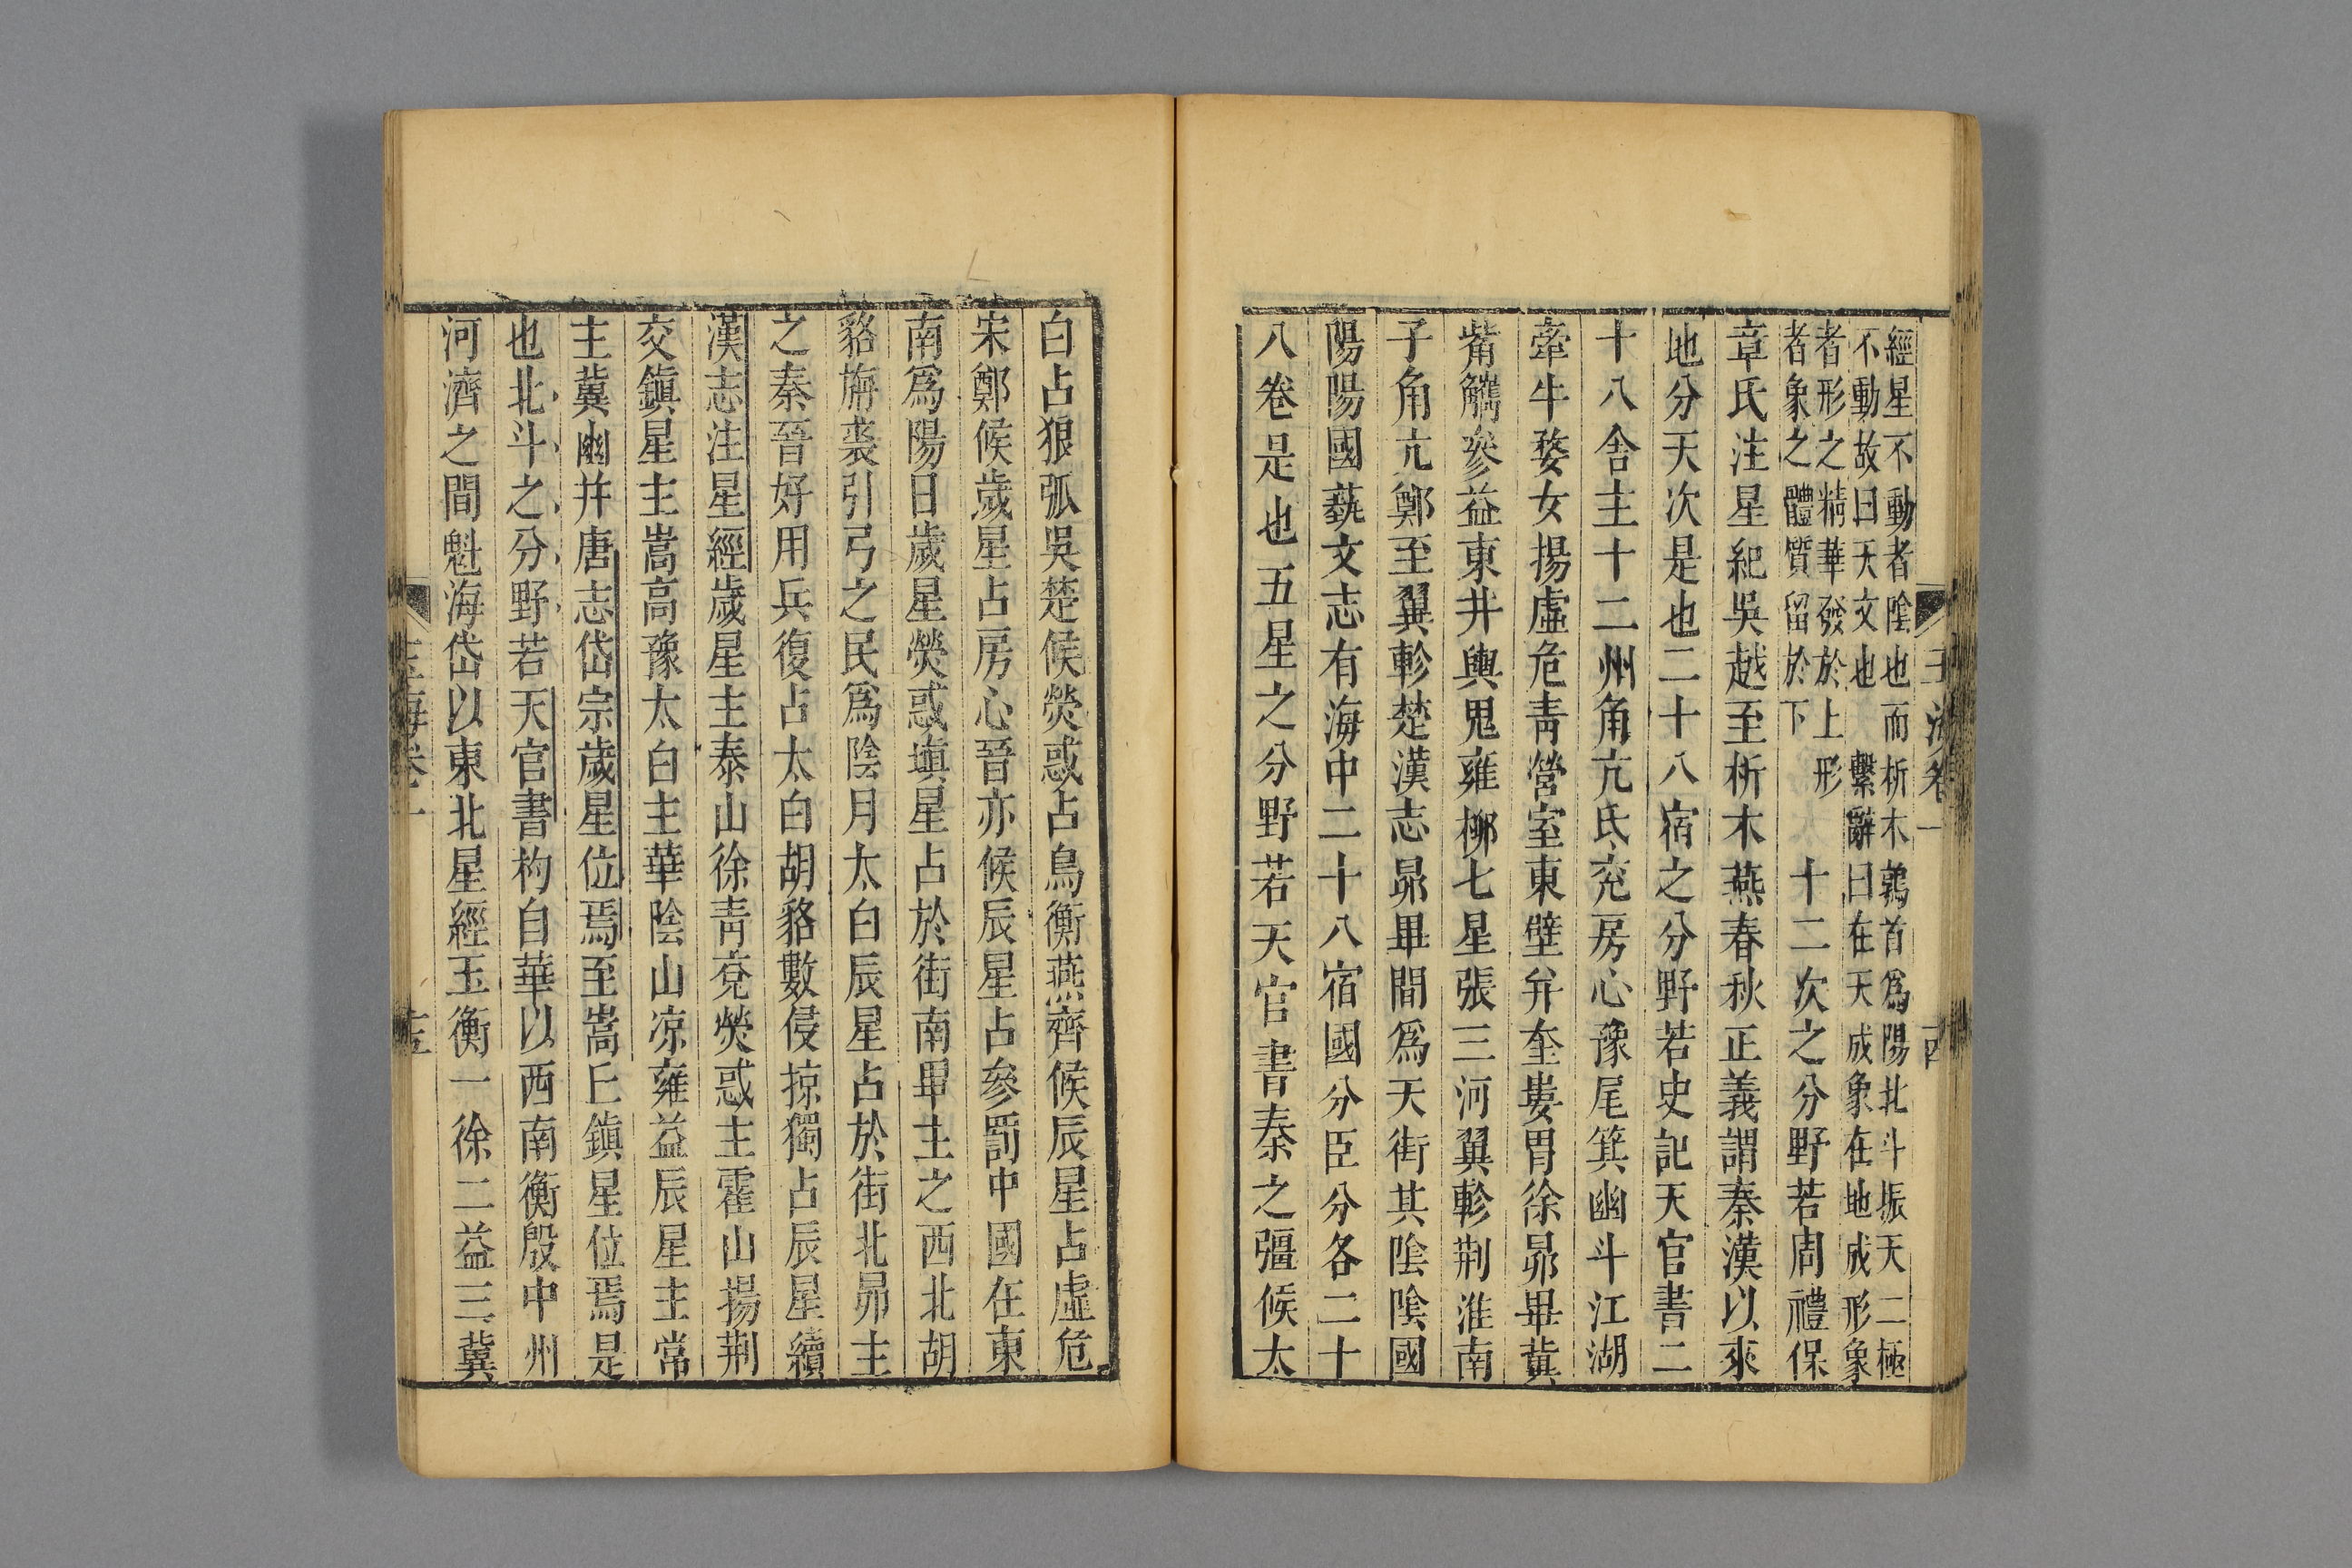 經星不動者陰也而析木鶉首爲陽北斗振天二極
不動故曰天文也 繫辭曰在天成象在地成形象
者形之精華發於上形
者象之體質留於下
十二次之分野若周禮保
章氏注星紀吳越至析木燕春秋正義謂秦漢以來
地分天次是也二十八宿之分野若史記天官書二
十八舍主十二州角亢氐兖房心豫尾箕幽斗江湖
牽牛婺女揚虛危青營室東壁并奎婁胃徐昴畢冀
觜觿參益東井輿鬼雍柳七星張三河翼軫荆淮南
子角亢鄭至翼軫楚漢志昴畢間爲天街其陰陰國
陽陽國藝文志有海中二十八宿國分臣分各二十
八卷是也五星之分野若天官書秦之疆候太
白占狼弧吳楚候熒惑占鳥衡燕齊候辰星占虛危
宋鄭候歲星占房心晉亦候辰星占參罰中國在東
南爲陽日歲星熒惑塡星占於街南畢主之西北胡
貉旃裘引弓之民爲陰月太白辰星占於街北昴主
之秦晉好用兵復占太白胡貉數侵掠獨占辰星續
漢志注星經歲星主泰山徐青兗熒惑主霍山揚荆
交鎭星主嵩高豫太白主華陰山凉雍益辰星主常
主冀幽并唐志岱宗歲星位焉至嵩丘鎭星位焉是
也北斗之分野若天官書杓自華以西南衡殷中州
河濟之間魁海岱以東北星經玉衡一徐二益三冀